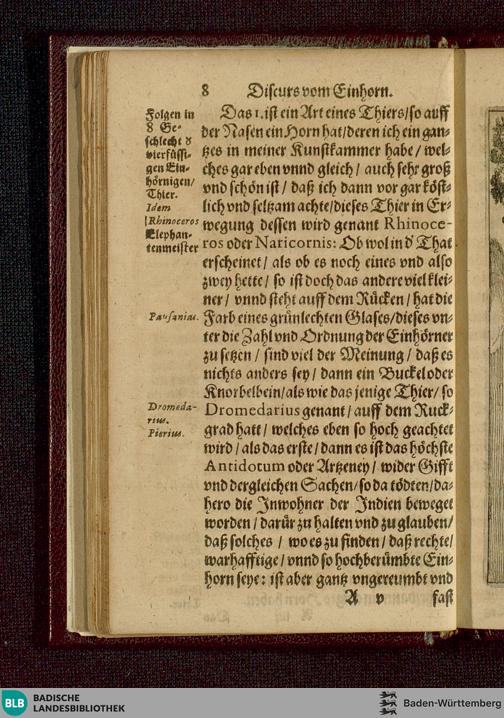 8 Discurs vom Einhorn.
Folgen in
8 Ge-
schlecht d
vierfüssi-
gen Ein-
hörnigen/
Thier.
Idem
Rhinoceros
Elephan-
tenmeister
Pausanias.
Dromeda-
rius.
Pierius.
Das 1. ist ein Art eines Thiers/ so auff
der Nasen ein Horn hat/ deren ich ein gan-
tzes in meiner Kunstkammer habe/ wel-
ches gar eben vnnd gleich/ auch sehr groß
vnd schön ist/ daß ich dann vor gar köst-
lich vnd seltzam achte/ dieses Thier in Er-
wegung dessen wird genant Rhinoce-
ros oder Naricornis: Ob wol in d' That
erscheinet/ als ob es noch eines vnd also
zwey hette/ so ist doch das andere viel klei-
ner/ vnnd steht auff dem Rücken/ hat die
Farb eines grünlechten Glases/ dieses vn-
ter die Zahl vnd Ordnung der Einhörner
zu setzen/ sind viel der Meinung/ daß es
nichts anders sey/ dann ein Buckel oder
Knorbelbein/ als wie das jenige Thier/ so
Dromedarius genant/ auff dem Ruck-
grad hatt/ welches eben so hoch geachtet
wird/ als das erste/ dann es ist das höchste
Antidotum oder Artzeney/ wider Gifft
vnd dergleichen Sachen/ so da tödten/ da-
hero die Inwohner der Indien beweget
worden/ darür zu halten vnd zu glauben/
daß solches/ wo es zu finden/ daß rechte/
warhafftige/ vnnd so hochberümbte Ein-
horn seye: ist aber gantz vngereumbt vnd
A v fast
BLB BADISCHE
LANDESBIBLIOTHEK
Baden-Württemberg